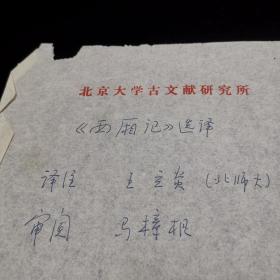 北京大学古文献研究所
《西厢记》选译
译注 王立炎 (北师大)
审阅 马樟根